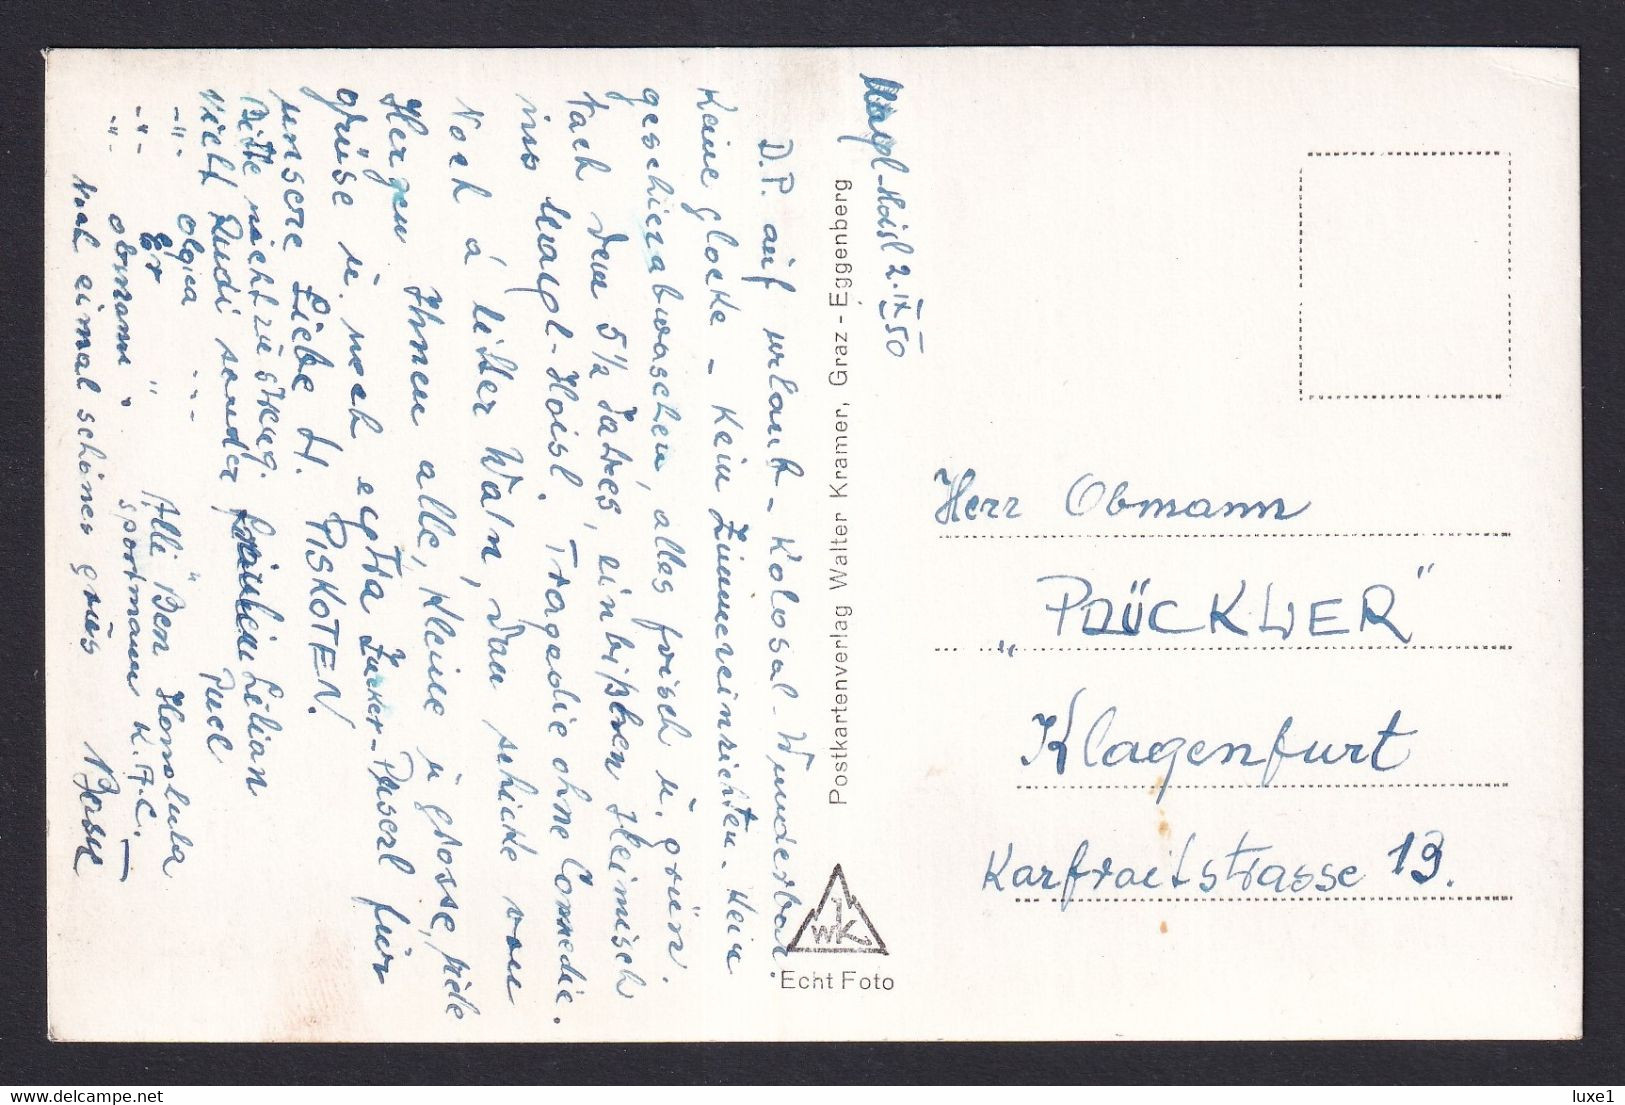 Nagl-Hoisl 2.IX.50
D.P. auf urlaub - Kolosal - Wunderbar.
Keine glocke - kein Zimmereinrichten - Kein
geschierabwaschen, alles frisch u. grün.
Nach den 5 1/2 Jahres, ein bißchen Heimisch
ins Nagl-Hoisl. Tragedie ohne Commedie.
Noch á liter Waln, dan schicke von
Hergen Ihnen alle, kleine u grosse, viele
grüse u. noch egstra Zucker-Puserl für
unsere Liebe H. PISKOTEN.
Bitte nicht zu
nicht Rudi sonder Lilian
-"- Olga -"-
-"- Er " Alli "Ben Homolula
-"- obmann " sportmann K.A.C.
Noch eimal schöner grüs
Postkartenverlag Walter Kramer, Graz - Eggenberg
1
WK
Echt Foto
Herr Obmann
"PRÜCKLER"
Klagenfurt
Karfraitstrasse 19.
luxe1
delcampe.net